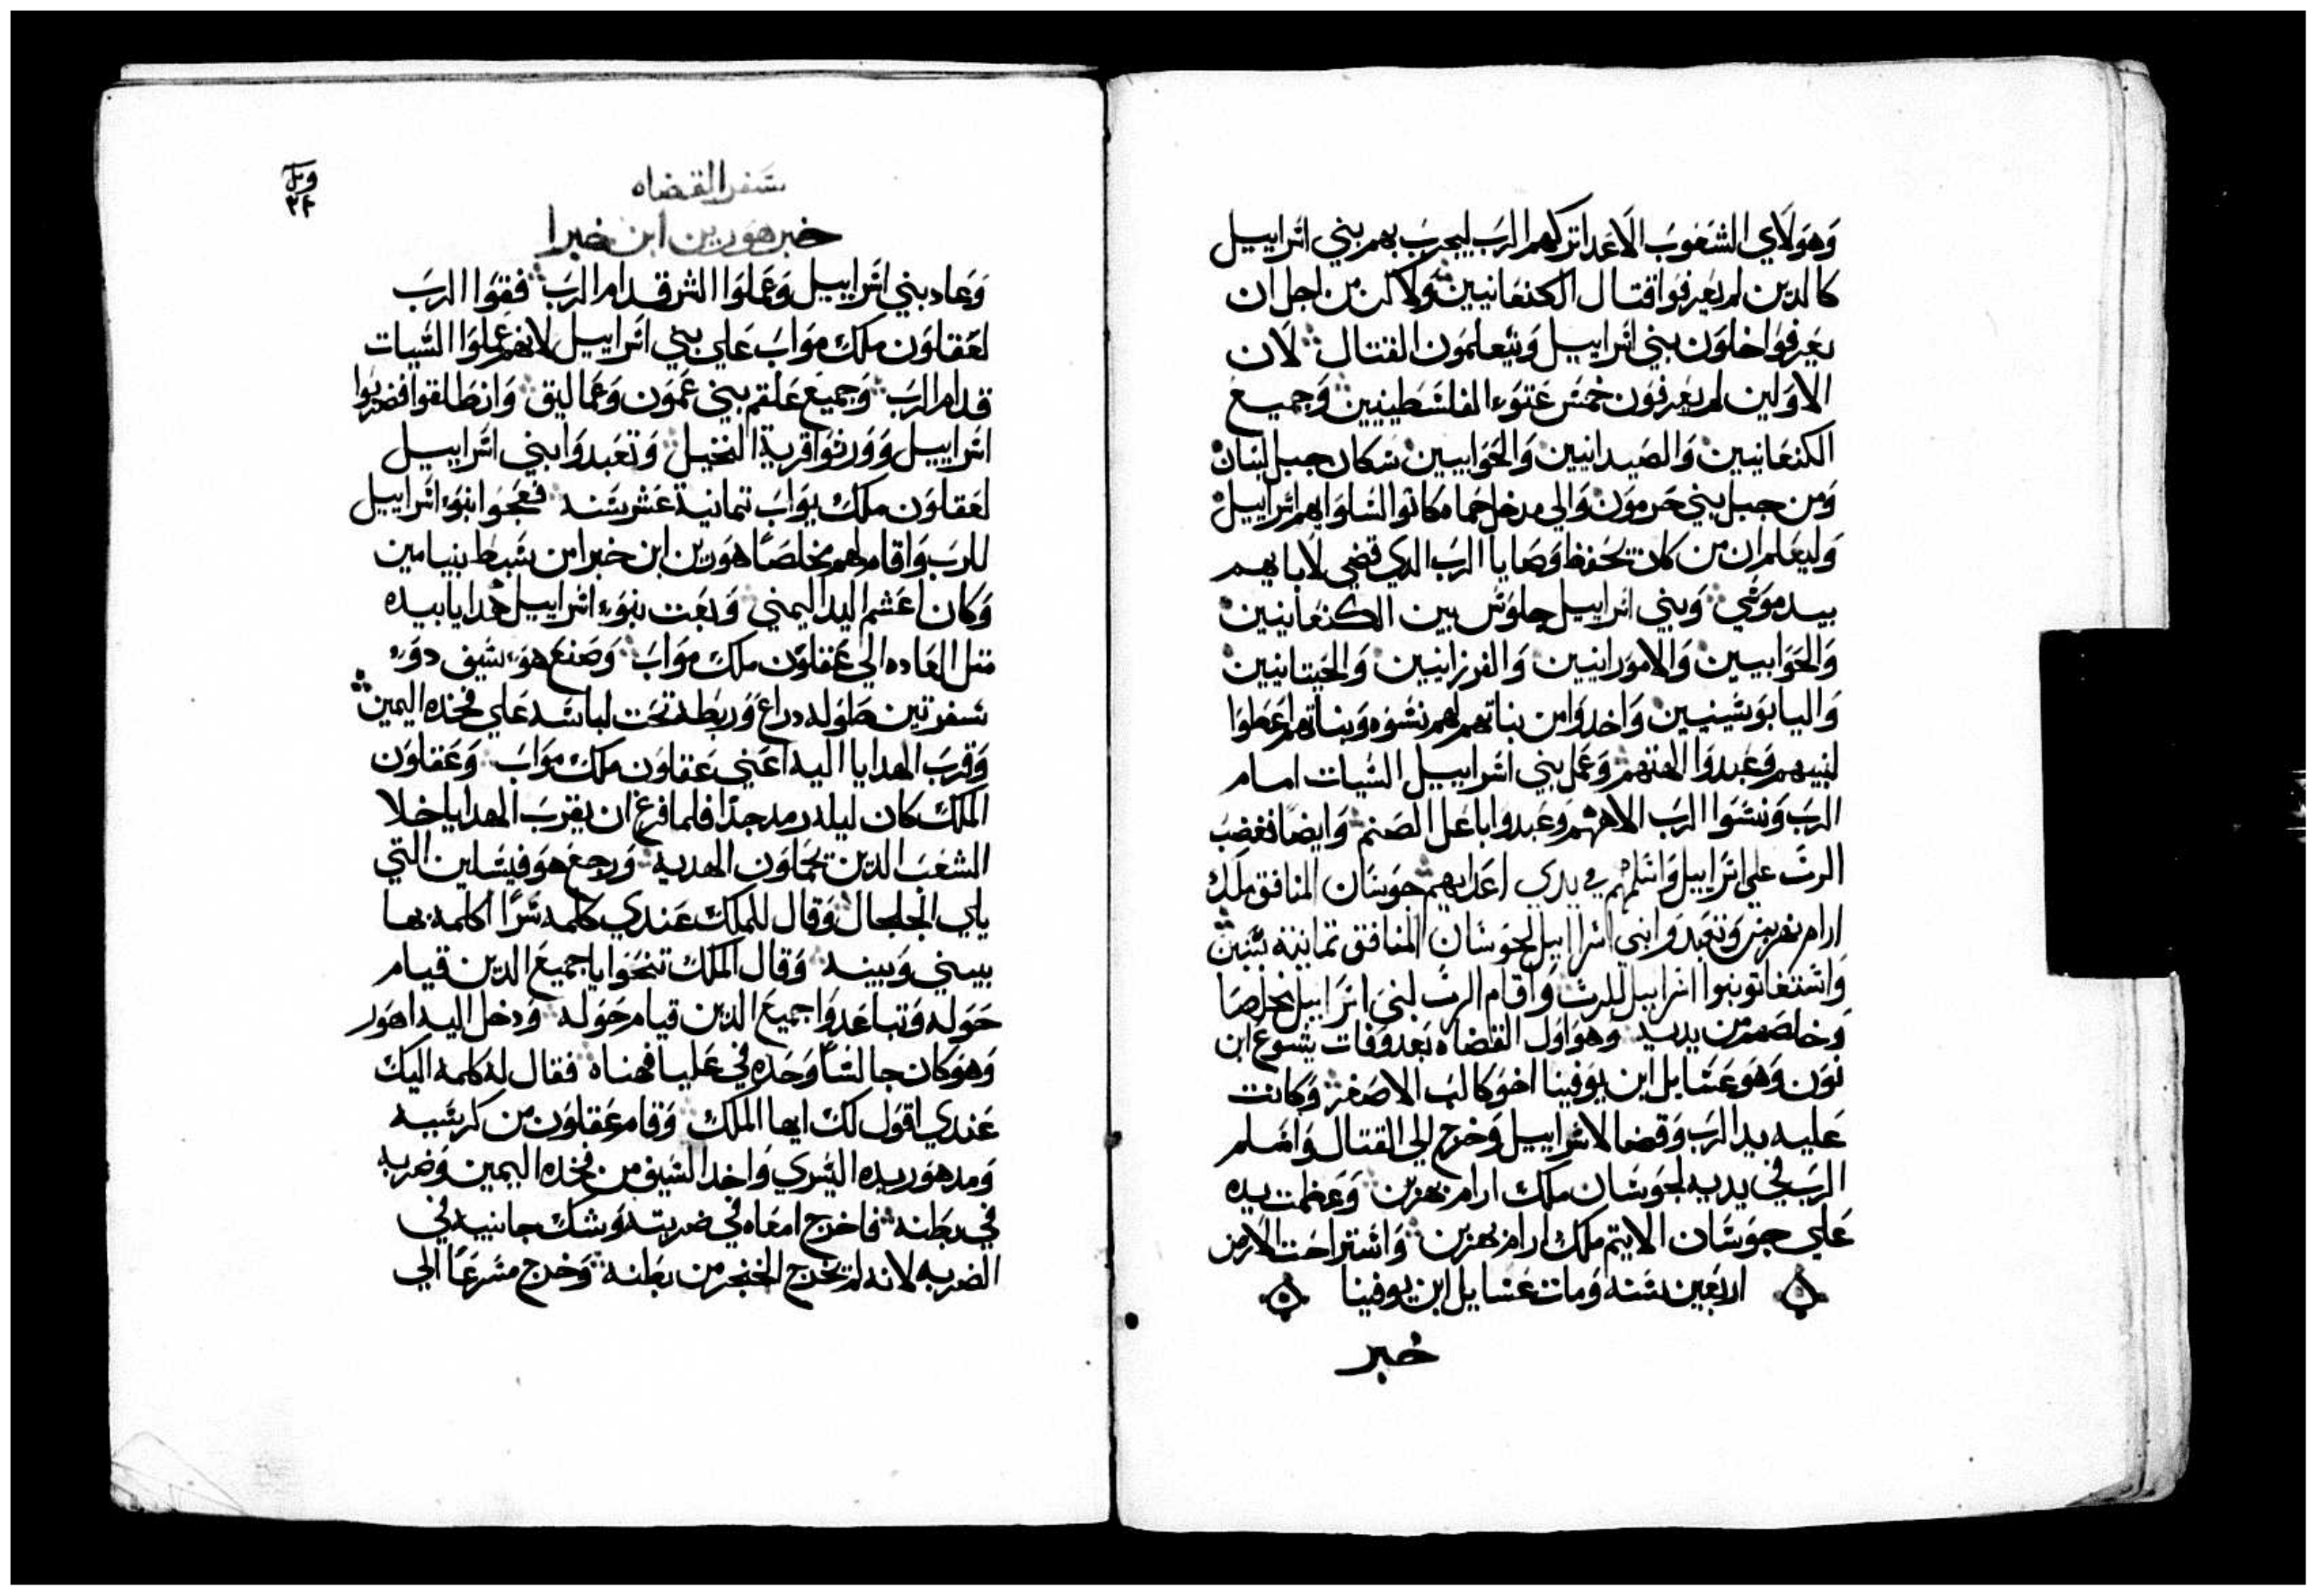 وَهَولَاي الشعَوبَ الَاعَدا تركهم الرَب ليجربَ بهم بني اسَراييل
كالدين لم يعَرفوا قتال الكنعَانيين وَلاكن من اجل ان
يعَرفوا خلوَن بني اسَراييل وَيتعلمَون القتال لَان
الاوَلين لم يعَرفوَن خمسَ عَتوَة الفلسَطينيين وَجميع
الكنعَانيين وَالصَيدانيين وَالحَوَاييين سَكان جبل لبنان
وَمن جبل بني حَرموَن وَالي مدخل حَماه كانوا السَلوَا بهم اسَراييل
وَليعَلم ان من كان يحَفظ وَصَايا الرَب الدي قضي لَابايهم
بيد موَسَي وَبني اسَراييل جلوَس بين الكنعَانيين
وَالحَوَابيين وَالاموَرانيين وَالفرزانيين وَالحَيتانيين
وَاليابوَسَيين وَاخدوَا من بناتهم لهم نسَوَه وَبناتهم اعَطوَا
لبنيهم وَعَبدوَا الهتهم وَعَمل بني اسَراييل السَيات امام
الرَب وَنسَوَا الرَب الاههم وَعبدوا باعَل الصَنم وَايضًا فغضبَ
الربَ علي اسَراييل وَاسَلمهم في يدي اعَدايهم جوَسَان المنافق ملك
ارام نهرين وَتعَبدوَا بني اسَراييل لجوَسَان المنافق تمانية سَنين
وَاسَتغاتو بنوا اسَراييل للربَ وَاقام الربَ لبني اسَراييل مخلصًا
وَخلصَهم من يديه وَهوَ اوَل القضَاه بَعَد وَفات يشَوع ابن
نوَن وَهوَ عَتنايل ابن يوَفينا اخوَ كالبَ الاصَغر وَكانت
عَليه يد الرَب وَقضَا لاسَراييل وَخرج الي القتال وَاسَلم
الرَب في يديه لجوَسَان ملك ارام نهرين وَعَظمت يده
عَلي جوَسَان الاتيم ملك ارام نهرين وَاسَتراحَت الَارض
اربَعَين سَنه وَمات عَتنايل ابن يوفينا
خبر
سَفر القضاه
خبر هوَرين ابن خبرا
وَعَاد بني اسَراييل وَعَملوَا الشر قدام الرَب فقوَا الرَب
لعَقلوَن ملك موَابَ عَلي بني اسَراييل لانهم عملوَا السَيات
قدام الرَب وَجميعَ عَلقم بني عَموَن وَعَماليق وَانطَلقوا فضربوا
اسَراييل وَوَرتوَا قرية النخيل وَتعَبدوَا بني اسَراييل
لعَقلوَن ملك يوَابَ تمانية عَشر سَنه فعَجوَا بنوَا اسَراييل
للرَب وَاقام لهم مخلصَا هوَرين ابن خبرا من سَبط بنيامين
وَكان اعَشم اليد اليمني وَبعَت بنوَا اسَراييل هَدايا بيده
متل العَاده الي عَقلوَن ملك موَابَ وَصَنعَ هوَ سَيف دوَ
سَفرتين طَوله دراع وَربطَه تحَت لباسَه عَلي فخده اليمين
وَقربَ الهدايا اليه اعَني عَقلوَن ملك موَابَ وَعَقلوَن
الملك كان ليله رمد جدًا فلما فرغ ان يقربَ الهدايا خلا
الشعَبَ الدين يحَملوَن الهديه وَرجعَ هوَ فيسَلين التي
يلي الجلجال وَقال للملك عَندي كلمه سَرًا اكلمه بها
بيني وَبينه وَقال الملك تنحَوا يا جميعَ الدين قيام
حَوَله وَتباعَدوَا جميعَ الدين قيام حَوَله وَدخل اليه اهوَر
وَهوَ كان جالسَا وَحَده في عَليا فهناه فقال له كلمه اليك
عَندي اقوَل لك ايها الملك وَقام عَقلوَن من كرسَيه
وَمد هوَر يده اليسَري وَاخد السَيف من فخده اليمين وَضربه
في بطَنه فاخرج امعَاه في ضربته وَشك جانبيه في
الضربه لانه لم يخرج الخنجر من بطَنه وَخرج مسَرعَا الي